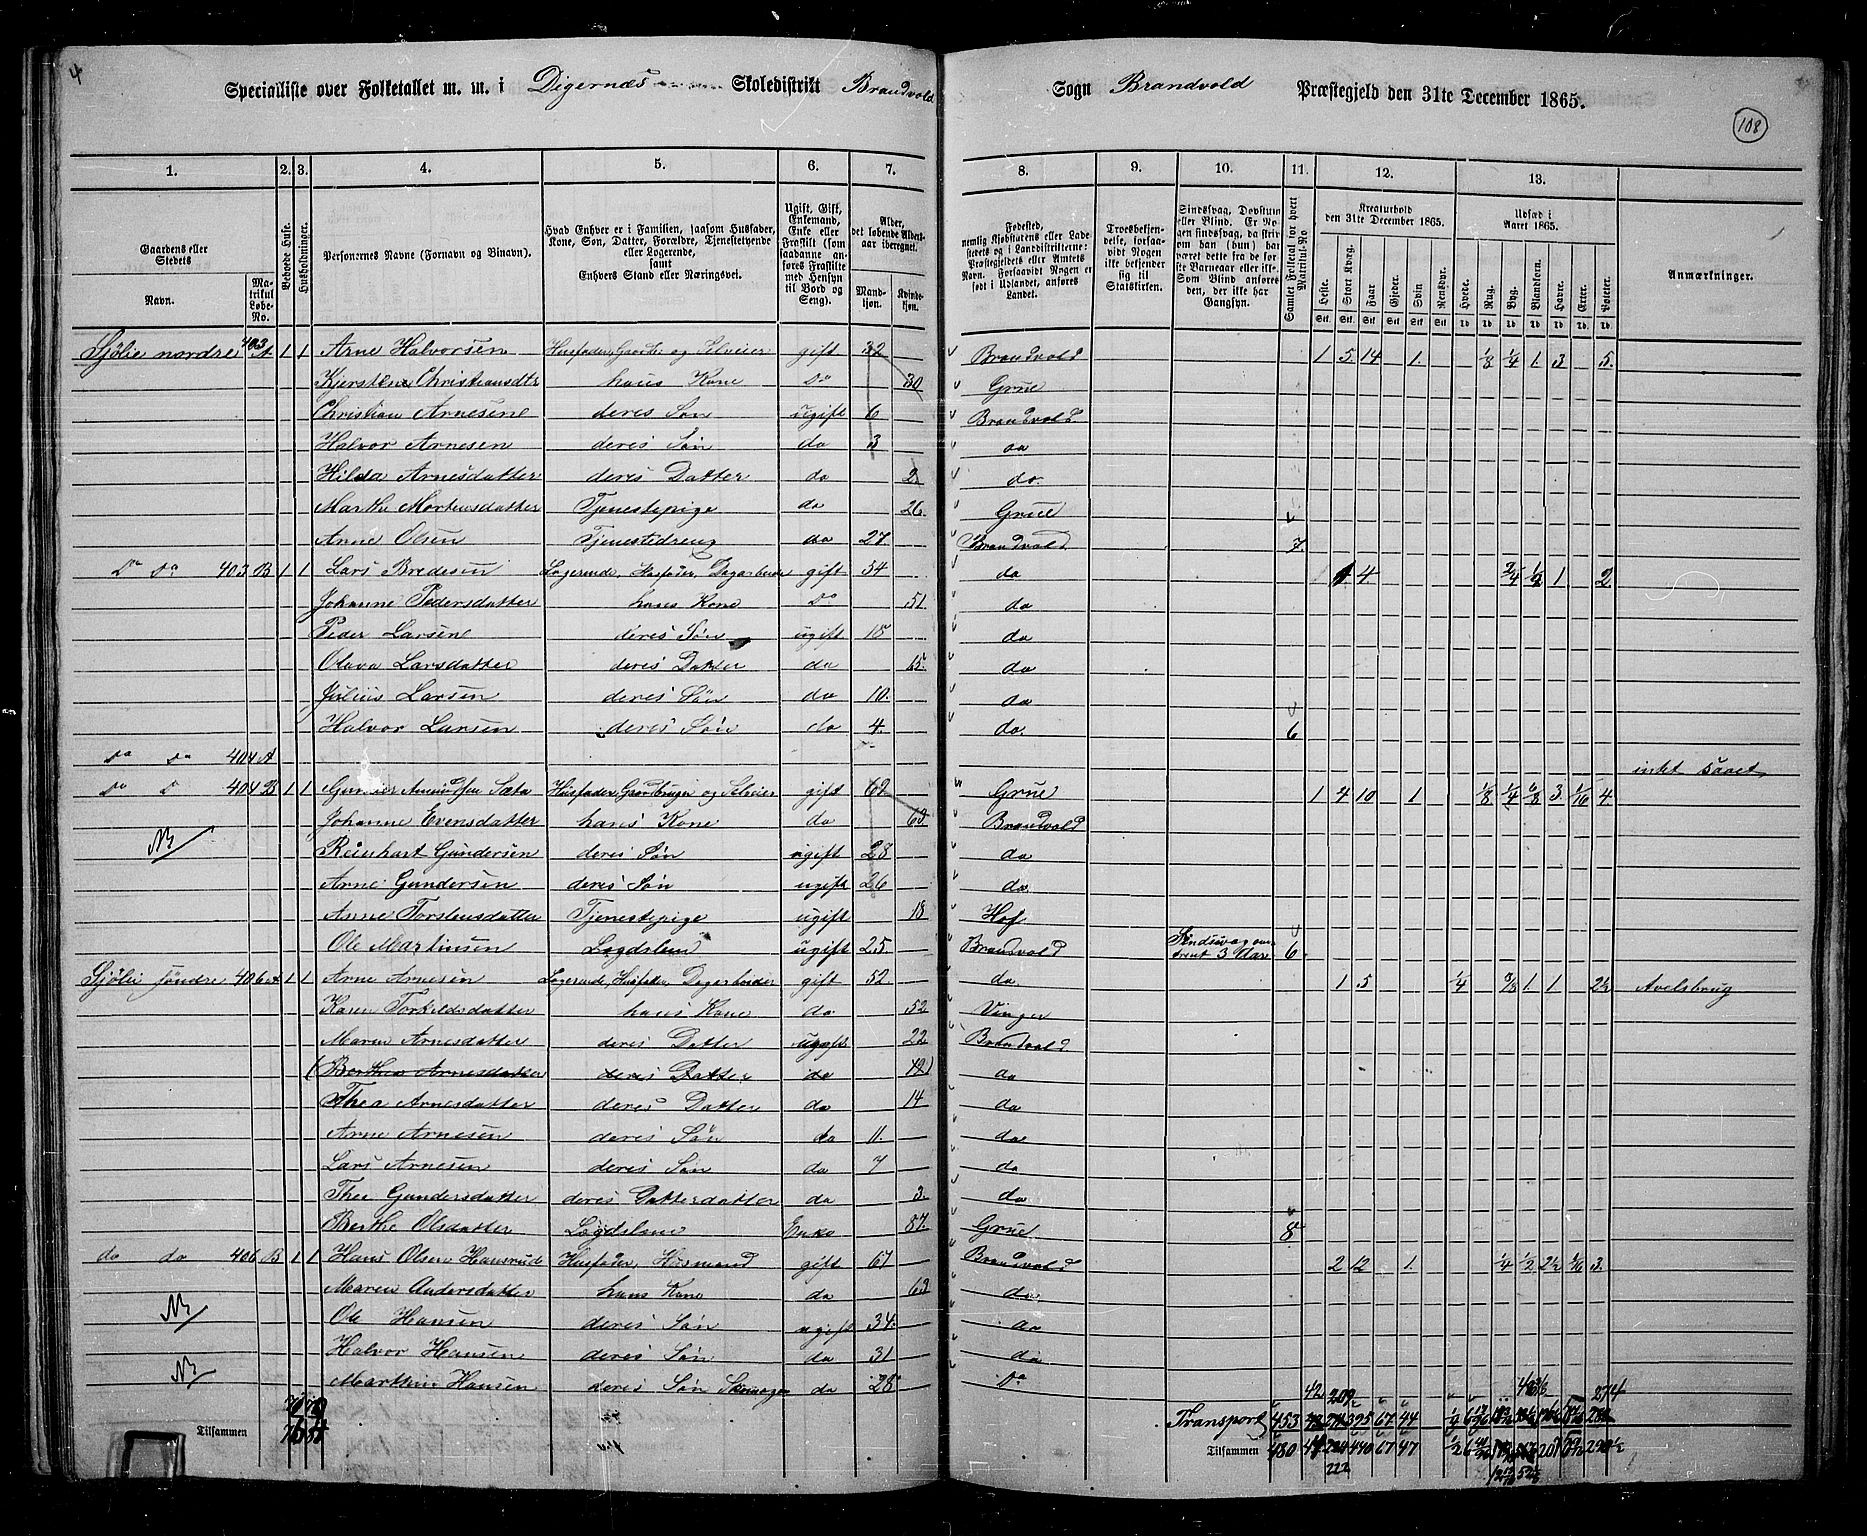 4
Specialliste over Folketallet m. m. i Digernæs Skoledistrikt Brandvold Sogn Brandvold Præstegjeld den 31te December 1865.
108
1. 2. 3. 4. 5. 6. 7. 8. 9. 10. 11. 12. 13.
Gaardens eller Stedets Navn. Matrikul Løbe-No.
Beboede Huse.
Husholdninger.
Personernes Navne (Fornavn og Binavn).
Hvad Enhver er i Familien, saasom Husfader, Kone, Søn, Datter, Forældre, Tjenestetyende eller Logerende, samt Enhvers Stand eller Næringsvei.
Ugift, Gift, Enkemand, Enke eller Fraskilt (som saadanne anføres Fraskilte med Hensyn til Bord og Seng).
Alder, det løbende Aldersaar iberegnet. Mandkjøn. Kvindekjøn.
Fødested, nemlig Kjøbstædens eller Ladestedets og i Landdistrikterne: Præstegjeldets eller Amtets Navn. Forsaavidt Nogen er født i Udlandet, anføres Landet.
Troesbekjendelse, forsaavidt Nogen ikke bekjender sig til Statskirken.
Sindssvag, Døvstum eller Blind. Er Nogen sindssvag, da skrives om han (hun) har været dette fra de første Barneaar eller ikke. Som Blind anføres den, der ikke har Gangsyn.
Samlet Folketal for hvert Matrikul-No
Kreaturhold den 31te December 1865. Heste. Stort Kvæg. Faar Gjeder. Svin Rensdyr.
Udsæd i Aaret 1865. Hvede. Rug. Byg. Blandkorn. Havre. Erter. Poteter.
Anmærkninger.
Sjölie nordre 403 A 1 1 Arne Halvorsen Husfader, Gaardbr og Selveier gift 32 Brandvold 1 5 14 1 1/8 1/4 1 3 5
Kjerstine Christiansdtr hans Kone Do 30 Grue
Christian Arnesene deres Søn ugift 6 Brandvold
Halvor Arnesen deres Søn do 3 do
Hilda Arnesdatter deres Datter do 2 do
Marthe Mortensdatter Tjenestepige do 26 Grue
Arne Olsen Tjenestedreng do 27 Brandvold 7
Do Do 403 B 1 1 Lars Bredesen Logerende, Husfader, Dagarbeider gift 54 do 1 4 2/4 1/2 1 2
Johanne Pedersdatter hans Kone Do 51 do
Peder Larsene deres Søn ugift 18 do
Olava Larsdatter deres Datter do 15 do
Julius Larsen deres Søn do 10 do
Halvor Larsen deres Søn do 4 do 6
Do Do 404 A intet saaet
Do D 404 B 1 1 Gunder Amundsen Sæta Husfader Gaardbruger og Selveier gift Grue 1 4 10 1 1/8 1/4 6/8 3 1/16 4
NB Johanne Evensdatter hans Kone do 63 Brandvold
Reinhart Gundersen deres Søn ugift 28 do
Arne Gundersen deres Søn ugift 26 do
Anne Torstensdatter Tjenestepige ugift 18 Hof
Ole Martinsen Lægdslem ugift 25 Brandvold Sindssvag omtrent 3 Aar 6
Sjölie söndre 406 A 1 1 Arne Arnesen Logerende, Husfader, Dagarbeider gift 52 do 1 5 1/4 1 1 2½ Avelsbrug
Karen Torkildsdatter hans Kone do 52 Vinger
Maren Arnesdatter deres Datter ugift 22 Brandvold
(Berthe Arnesdatter deres Datter do do
Thea Arnesdatter deres Datter do 14 do
Arne Arnesen deres Søn do 11 do
Lars Arnesen deres Søn do 7 do
Thea Gundersdatter deres Datterdatter do 3 do
Berthe Olsdatter Lægdslem Enke 87 Grue 8
do do 406 B 1 1 Hans Olsen Hansrud Husfader, Husmand gift 67 Brandvold 2 12 1 1/4 1/2 2½ 1/16 3
Maren Andersdatter hans Kone do 63 do
NB Ole Hansen deres Søn ugift 34 do
Halvor Hansen deres Søn do 31 do
NB Marthin Hansen deres Søn do 28 Do
Transport 453 395 67 44
Tilsammen
Tilsammen 480 440 67 47
222